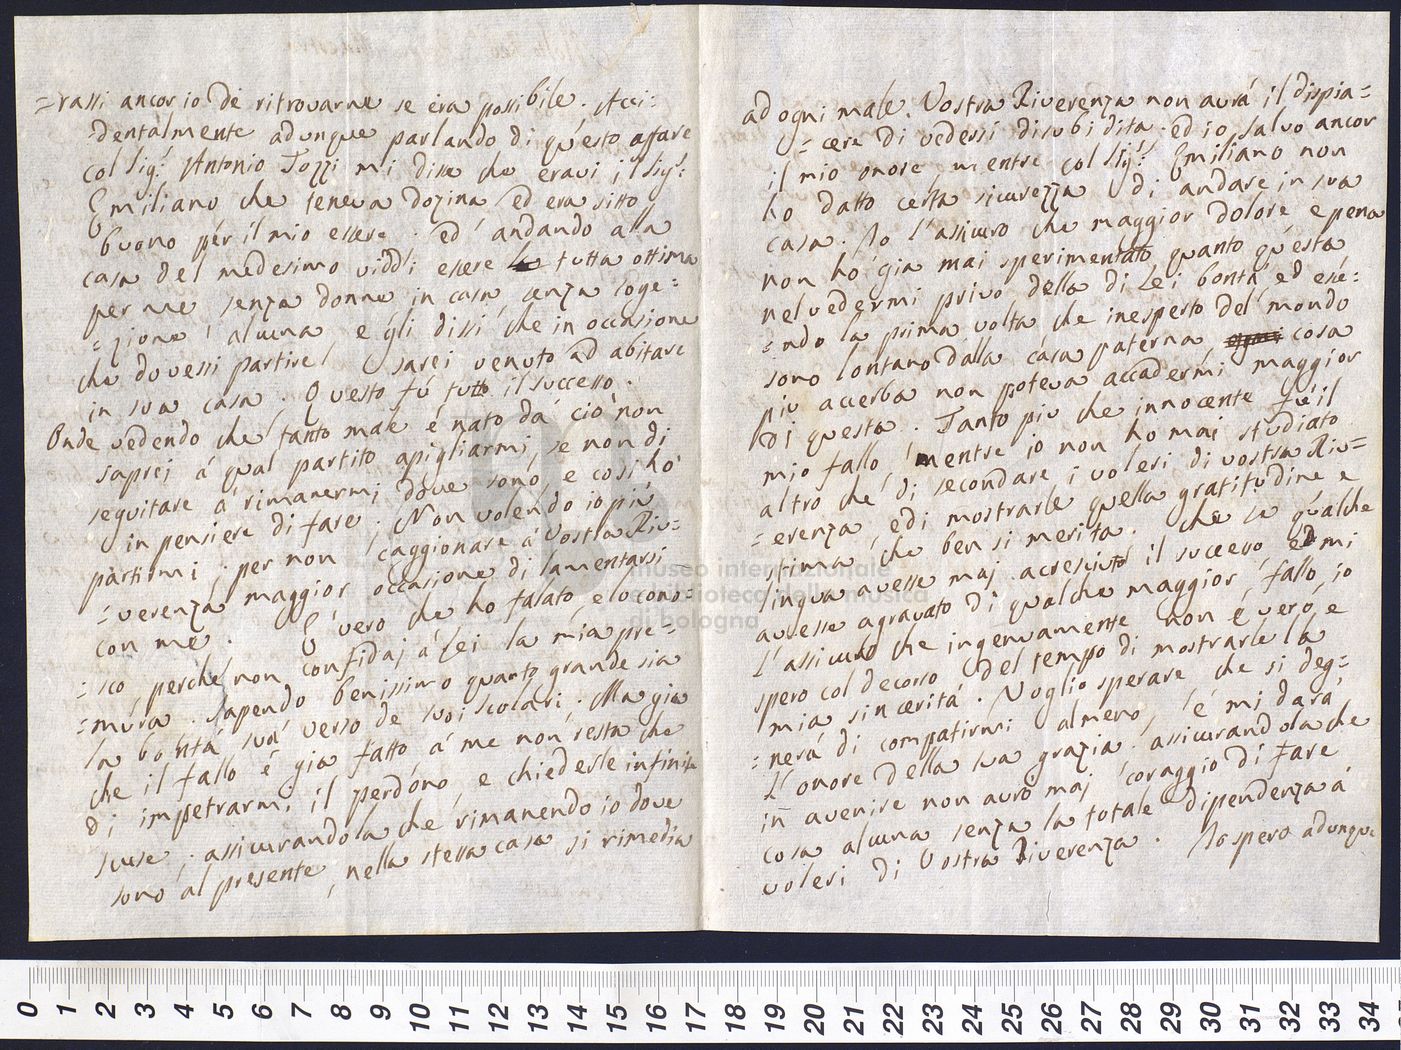 =rassi ancor io dè ritrovarne se era possibile. Acci=
dentalmente adunque parlando di questo affare
col Sig.r Antonio Tozzi mi disse che eravi il Sig.r
Emiliano che teneva dozina ed era sitto
buono pér il mio essere. ed' andando alla
casa del medesimo viddi essere tutta ottima
per me senza donne in casa, senza soge=
=zione alcuna e gli dissi che in occasione
che dovessi partire sarei venuto ad abitare
in sua casa. Questo fù tutto il successo.
Onde vedendo che tanto male é nato da ciò non
saprei á qual partito apigliarmi, se non di
seguitare á rimanermi dove sono, e così hò
in pensiere di fare. Non volendo io più
partirmi, per non caggionare á Vostra Riv=
=verenza maggior occasione di lamentarsi
con me. É vero che ho falato, e lo cono=
=sco perché non confidaj á Lei la mia pre=
=mura. sapendo benissimo quanto grande sia
la bontá sua verso de suoi scolari. Ma gia
che il fallo é gia fatto á me non resta che
di impetrarmi il perdóno, e chiederle infinite
scuse, assicurandola che rimanendo io dove
sono al presente, nella stessa casa si rimedia
ad ogni male. Vostra Riverenza non avrá il dispia=
=cere di vedersi disubidita. ed io salvo ancor
il mio onore mentre col Sig.r Emiliano non
ho datto certa sicurezza di andare in sua
casa. Io l'assicuro che maggior dolore e pena
non hó gia mai sperimentato quanto questa
nel vedermi privo della di Lei bontá, ed esé=
=ndo la prima volta che inesperto del mondo
sono lontano dalla casa paterna cosa
piu accerba non poteva accadermi maggior
di questa. Tanto piu che innocente fù il
mio fallo, mentre io non ho mai studiato
altro che di secondare i voleri di vostra Riv=
=erenza, e di mostrarle quella gratitudine e
stima, che ben si merita. Che se qualche
lingua avesse maj acresciuto il successo ed mi
avesse agravato di qualche maggior fallo, io
l'assicuro che ingenuamente non é vero, e
spero col decorso del tempo di mostrarle la
mia sincerità. Voglio sperare che si deg=
=nerá di compatirmi almeno, é mi dará
l'onore della sua grazia. assicurandola che
in avenire non avrò maj coraggio di fare
cosa alcuna senza la totale dipendenza á
voleri di Vostra Riverenza. Io spero adunque
museo internazionale
e biblioteca della musica
di bologna
0 1 2 3 4 5 6 7 8 9 10 11 12 13 14 15 16 17 18 19 20 21 22 23 24 25 26 27 28 29 30 31 32 33 34